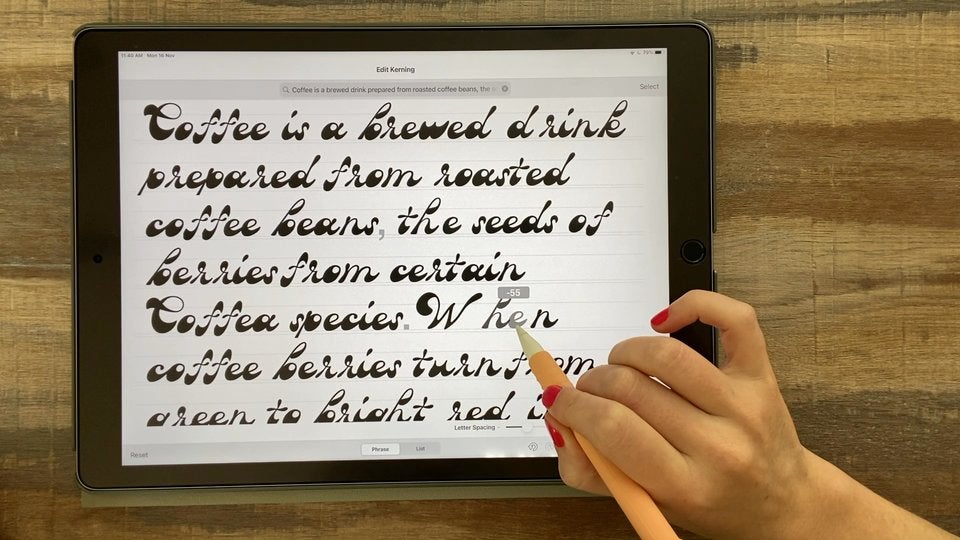 11:40 AM Mon 16 Nov
79%
Edit Kerning
Coffee is a brewed drink prepared from roasted coffee beans, the s
Select
Coffee is a brewed drink
prepared from roasted
coffee beans, the seeds of
berries from certain
Coffea species. When
-55
coffee berries turn from
green to bright red
Letter Spacing
Reset
Phrase
List